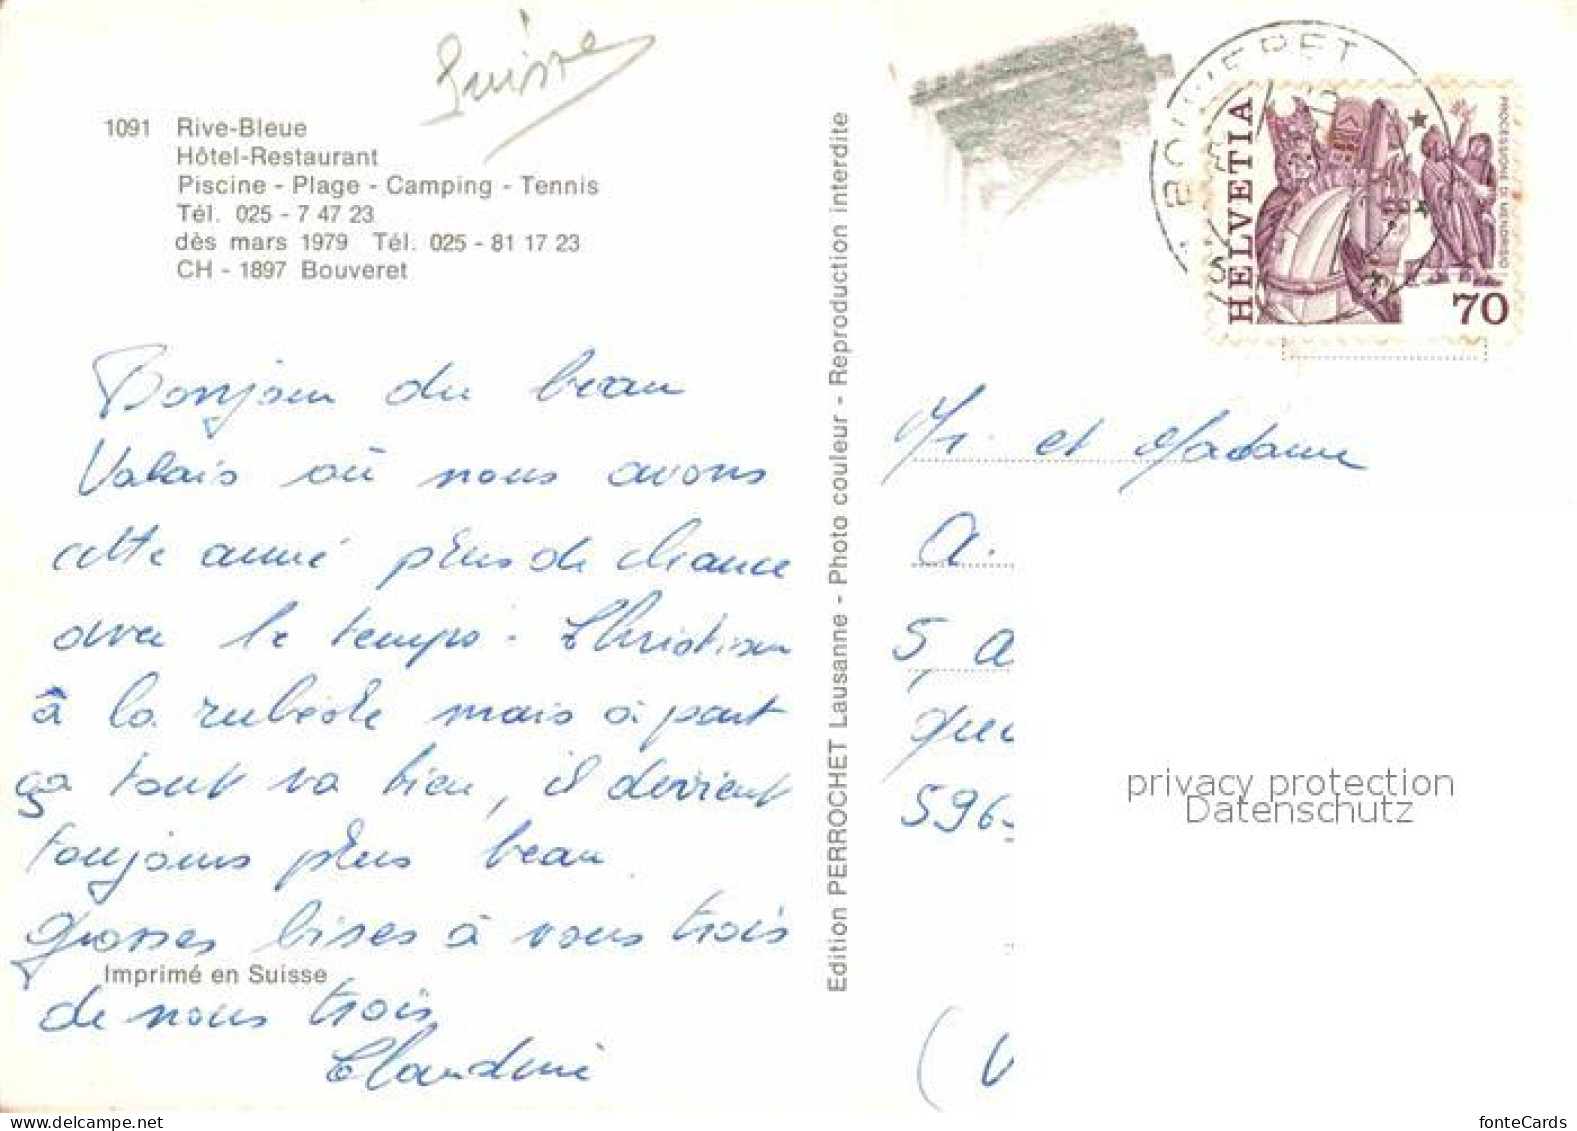 Suisse
1091 Rive-Bleue
Hôtel-Restaurant
Piscine - Plage - Camping - Tennis
Tél. 025 - 7 47 23
dès mars 1979 Tél. 025 - 81 17 23
CH - 1897 Bouveret
Bonjour du beau
Valais où nous avons
cette année plus de chance
avec le temps. Christian
a la rubéole mais à part
ça tout va bien, il devient
toujours plus beau.
Grosses bises à vous trois
Imprimé en Suisse
de nous trois
Claudine
Edition PERROCHET Lausanne - Photo couleur - Reproduction interdite
BOUVERET
HELVETIA
PROCESSIONE DI MENDRISIO
70
Mr. et Madame
A.
5, A
596
(V
privacy protection
Datenschutz
delcampe.net
fonteCards